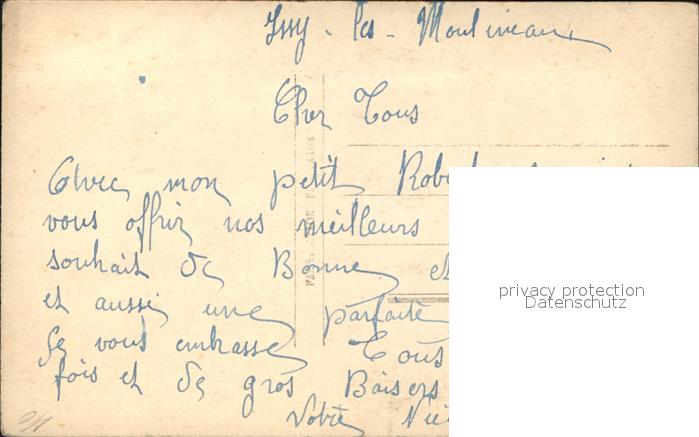 Issy-les-Moulineaux
Cher Tous
Avec mon petit Robert
vous offrir nos meilleurs
souhait de Bonne et
et aussi une parfaite
Je vous embrasse Tous
fois et de gros Baisers
Votre
privacy protection
Datenschutz